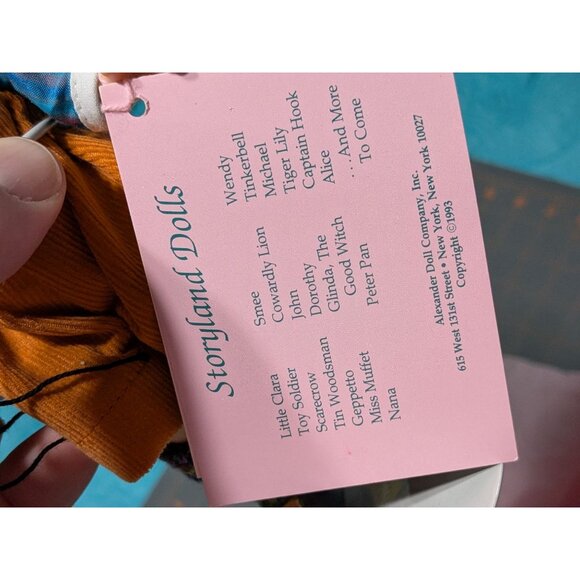 Storyland Dolls
Little Clara
Toy Soldier
Scarecrow
Tin Woodsman
Geppetto
Miss Muffet
Nana
Smee
Cowardly Lion
John
Dorothy
Glinda, The
Good Witch
Peter Pan
Wendy
Tinkerbell
Michael
Tiger Lily
Captain Hook
Alice
. . . And More
To Come
Alexander Doll Company, Inc.
615 West 131st Street • New York, New York 10027
Copyright ©1993